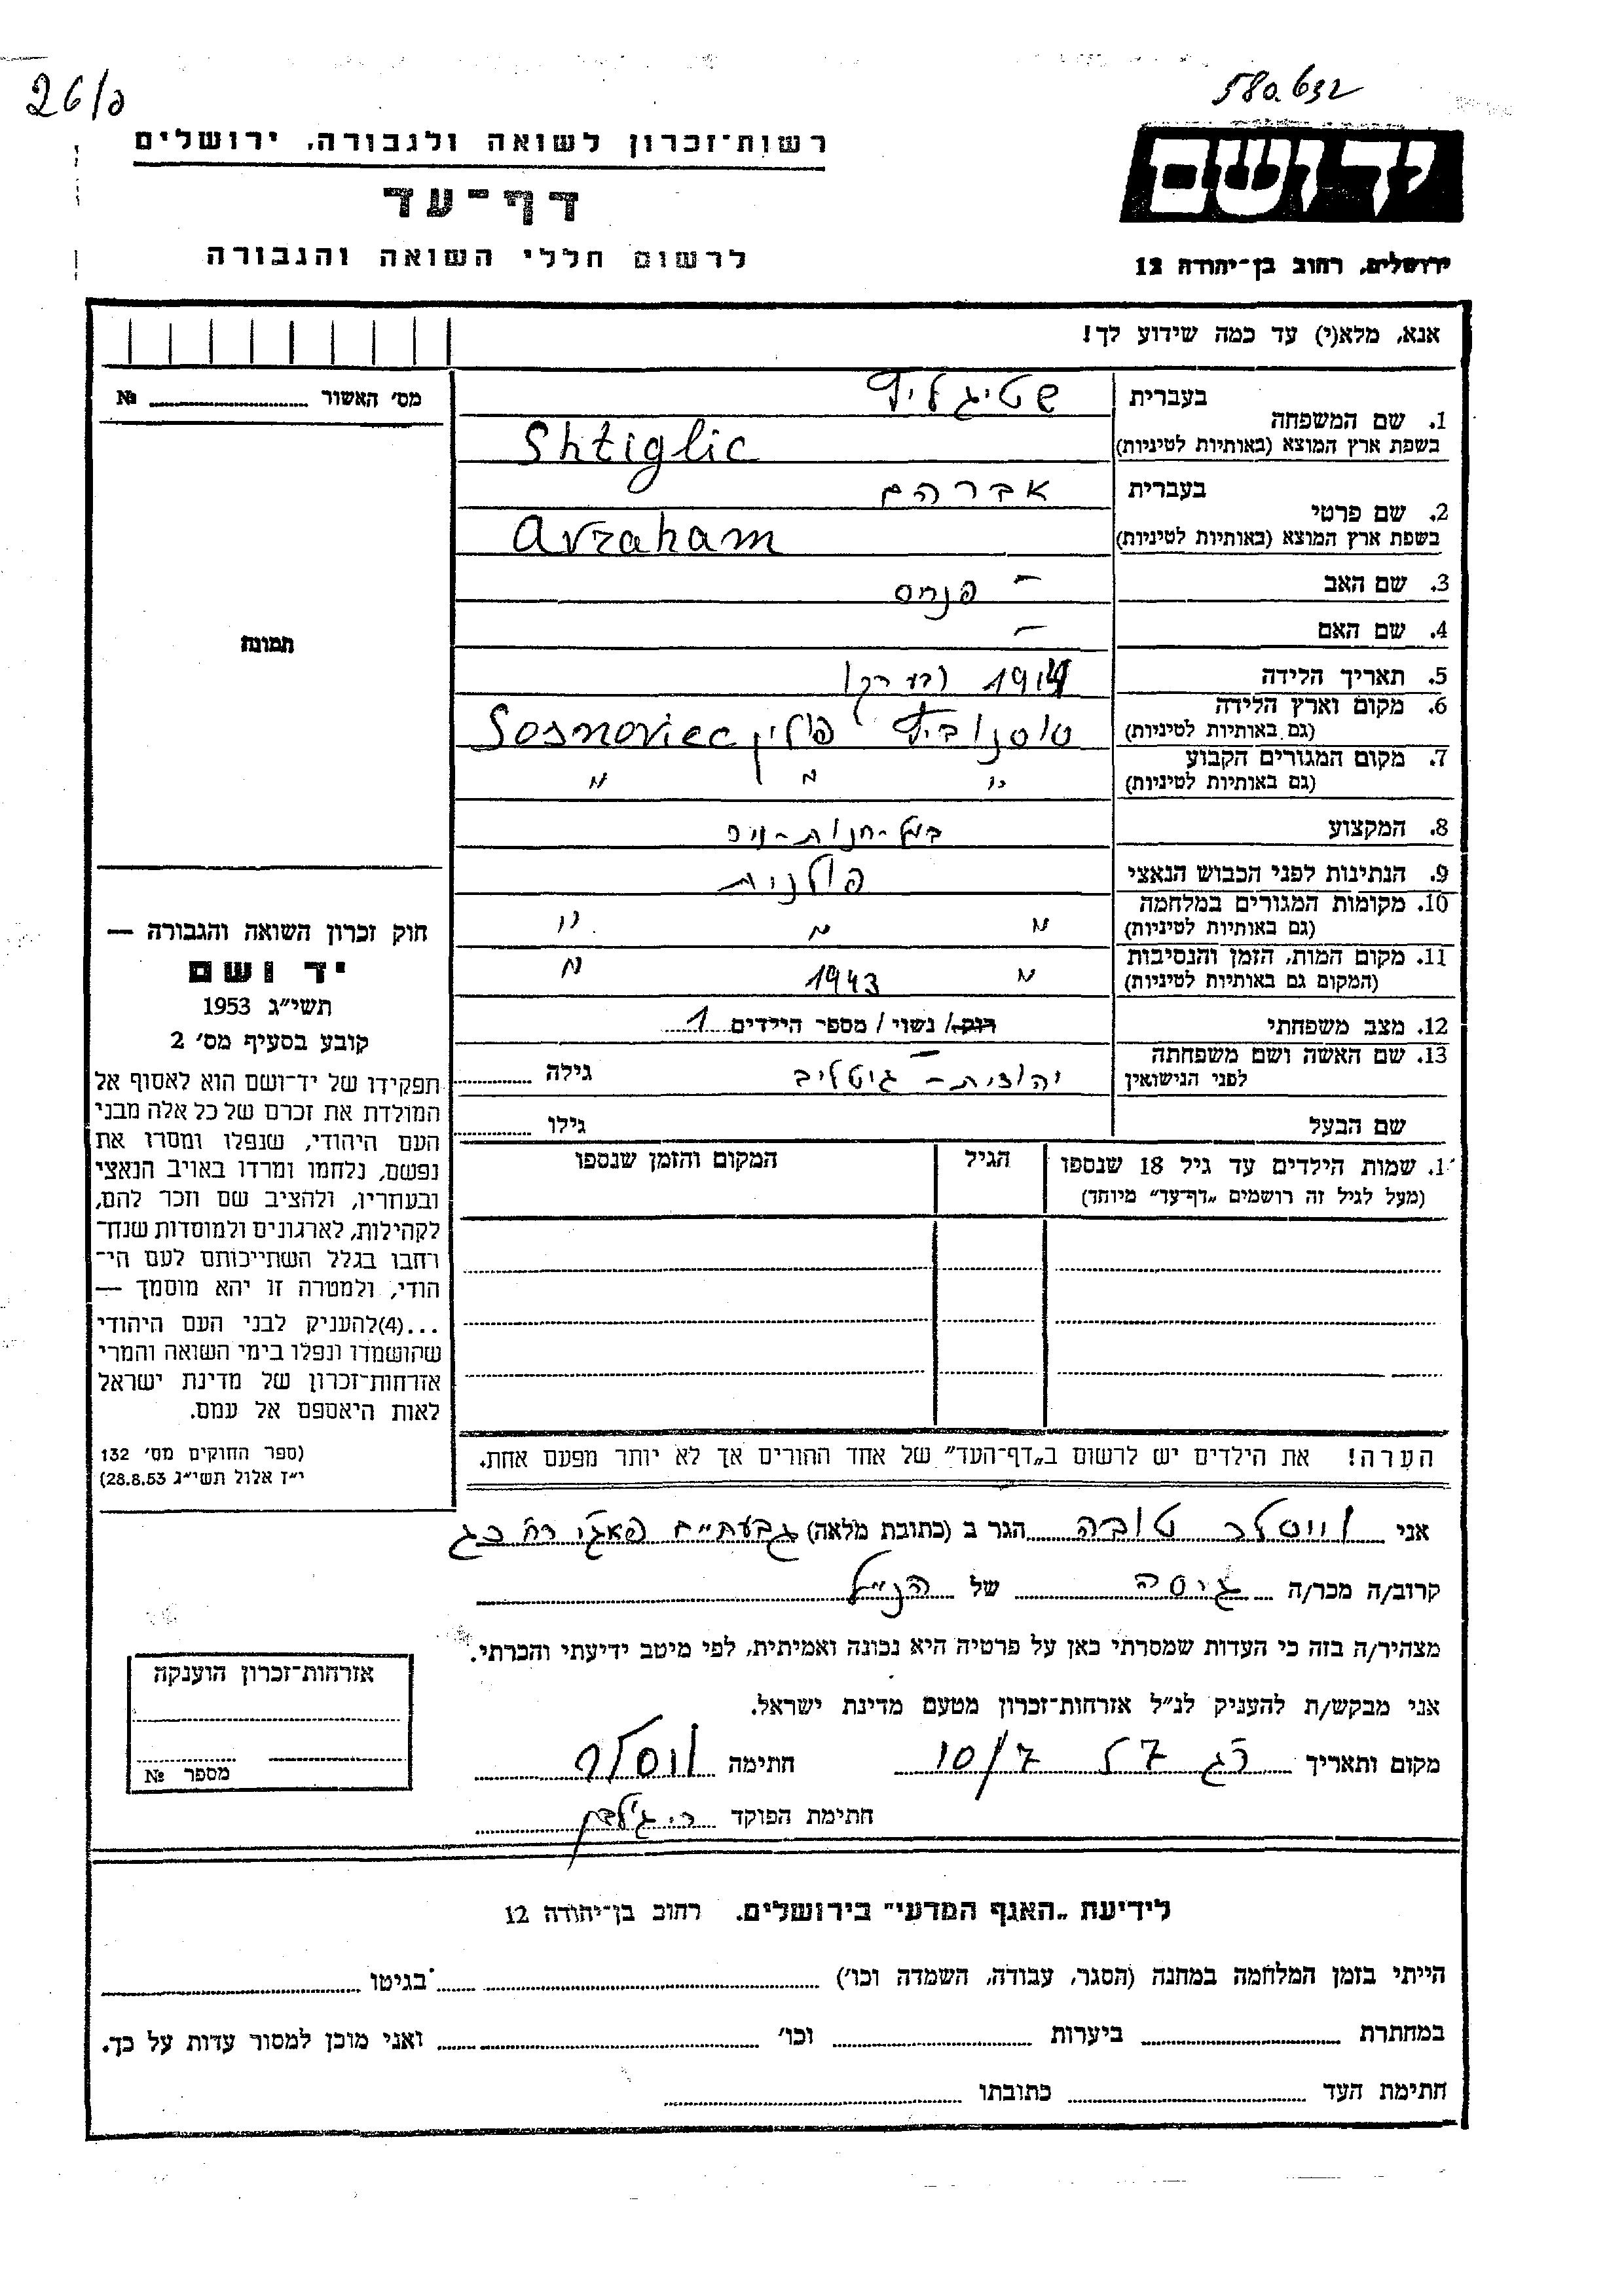 26/ם
580.632
רשות־זכרון לשואה ולגבורה. ירושלים
דף־עד
לרשום חללי השואה והגבורה
יד ושם
ירושלים, רחוב בן־יהודה 12
אנא, מלא(י) עד כמה שידוע לך!
מס׳ האשור № 
תמונה
1. שם המשפחה בעברית שטיגליץ
בשפת ארץ המוצא (באותיות לטיניות) Shtiglic
2. שם פרטי בעברית אברהם
בשפת ארץ המוצא (באותיות לטיניות) Avraham
3. שם האב – פנחס
4. שם האם –
5. תאריך הלידה 1914
6. מקום וארץ הלידה (גם באותיות לטיניות) סוסנוביץ פולין Sosnoviec
7. מקום המגורים הקבוע (גם באותיות לטיניות) " " "
8. המקצוע בעל-חנות-
9. הנתינות לפני הכבוש הנאצי פולנית
10. מקומות המגורים במלחמה (גם באותיות לטיניות) " " "
11. מקום המות, הזמן והנסיבות (המקום גם באותיות לטיניות) " 1943 "
12. מצב משפחתי רוק/ נשוי/ מספר הילדים 1
13. שם האשה ושם משפחתה לפני הנישואין יהודית – גוטליב גילה
שם הבעל גילו
1. שמות הילדים עד גיל 18 שנספו (מעל לגיל זה רושמים „דף־עד” מיוחד) הגיל המקום והזמן שנספו
הערה! את הילדים יש לרשום ב„דף־העד” של אחד ההורים אך לא יותר מפעם אחת.
חוק זכרון השואה והגבורה —
יד ושם
תשי״ג 1953
קובע בסעיף מס׳ 2
תפקידו של יד־ושם הוא לאסוף אל
המולדת את זכרם של כל אלה מבני
העם היהודי, שנפלו ומסרו את
נפשם, נלחמו ומרדו באויב הנאצי
ובעוזריו, ולהציב שם וזכר להם,
לקהילות, לארגונים ולמוסדות שנח־
רחבו בגלל השתייכותם לעם הי־
הודי, ולמטרה זו יהא מוסמך —
...(4)להעניק לבני העם היהודי
שהושמדו ונפלו בימי השואה והמרי
אזרחות־זכרון של מדינת ישראל
לאות היאספם אל עמם.
(ספר החוקים מס׳ 132
י״ז אלול תשי״ג 28.8.53)
אני ויסלר טובה הגר ב (כתובת מלאה) גבעת״ח
קרוב/ה מכר/ה גיסה של הנ״ל
מצהיר/ה בזה כי העדות שמסרתי כאן על פרטיה היא נכונה ואמיתית, לפי מיטב ידיעתי והכרתי.
אני מבקש/ת להעניק לנ״ל אזרחות־זכרון מטעם מדינת ישראל.
מקום ותאריך רג 57 10/7 חתימה ויסלר
חתימת הפוקד
אזרחות־זכרון הוענקה
מספר №
לידיעת „האגף המדעי” בירושלים. רחוב בן־יהודה 12
הייתי בזמן המלחמה במחנה (הסגר, עבודה, השמדה וכו׳) בגיטו
במחתרת ביערות וכו׳ ואני מוכן למסור עדות על כך.
חתימת העד כתובתו